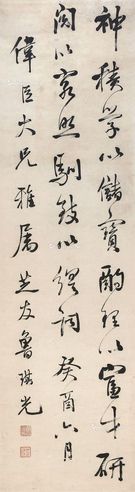 神積學以儲寶酌理以富才研
閱以窮照馴致以繹詞癸酉六月
偉臣大兄雅属芝友魯琪光